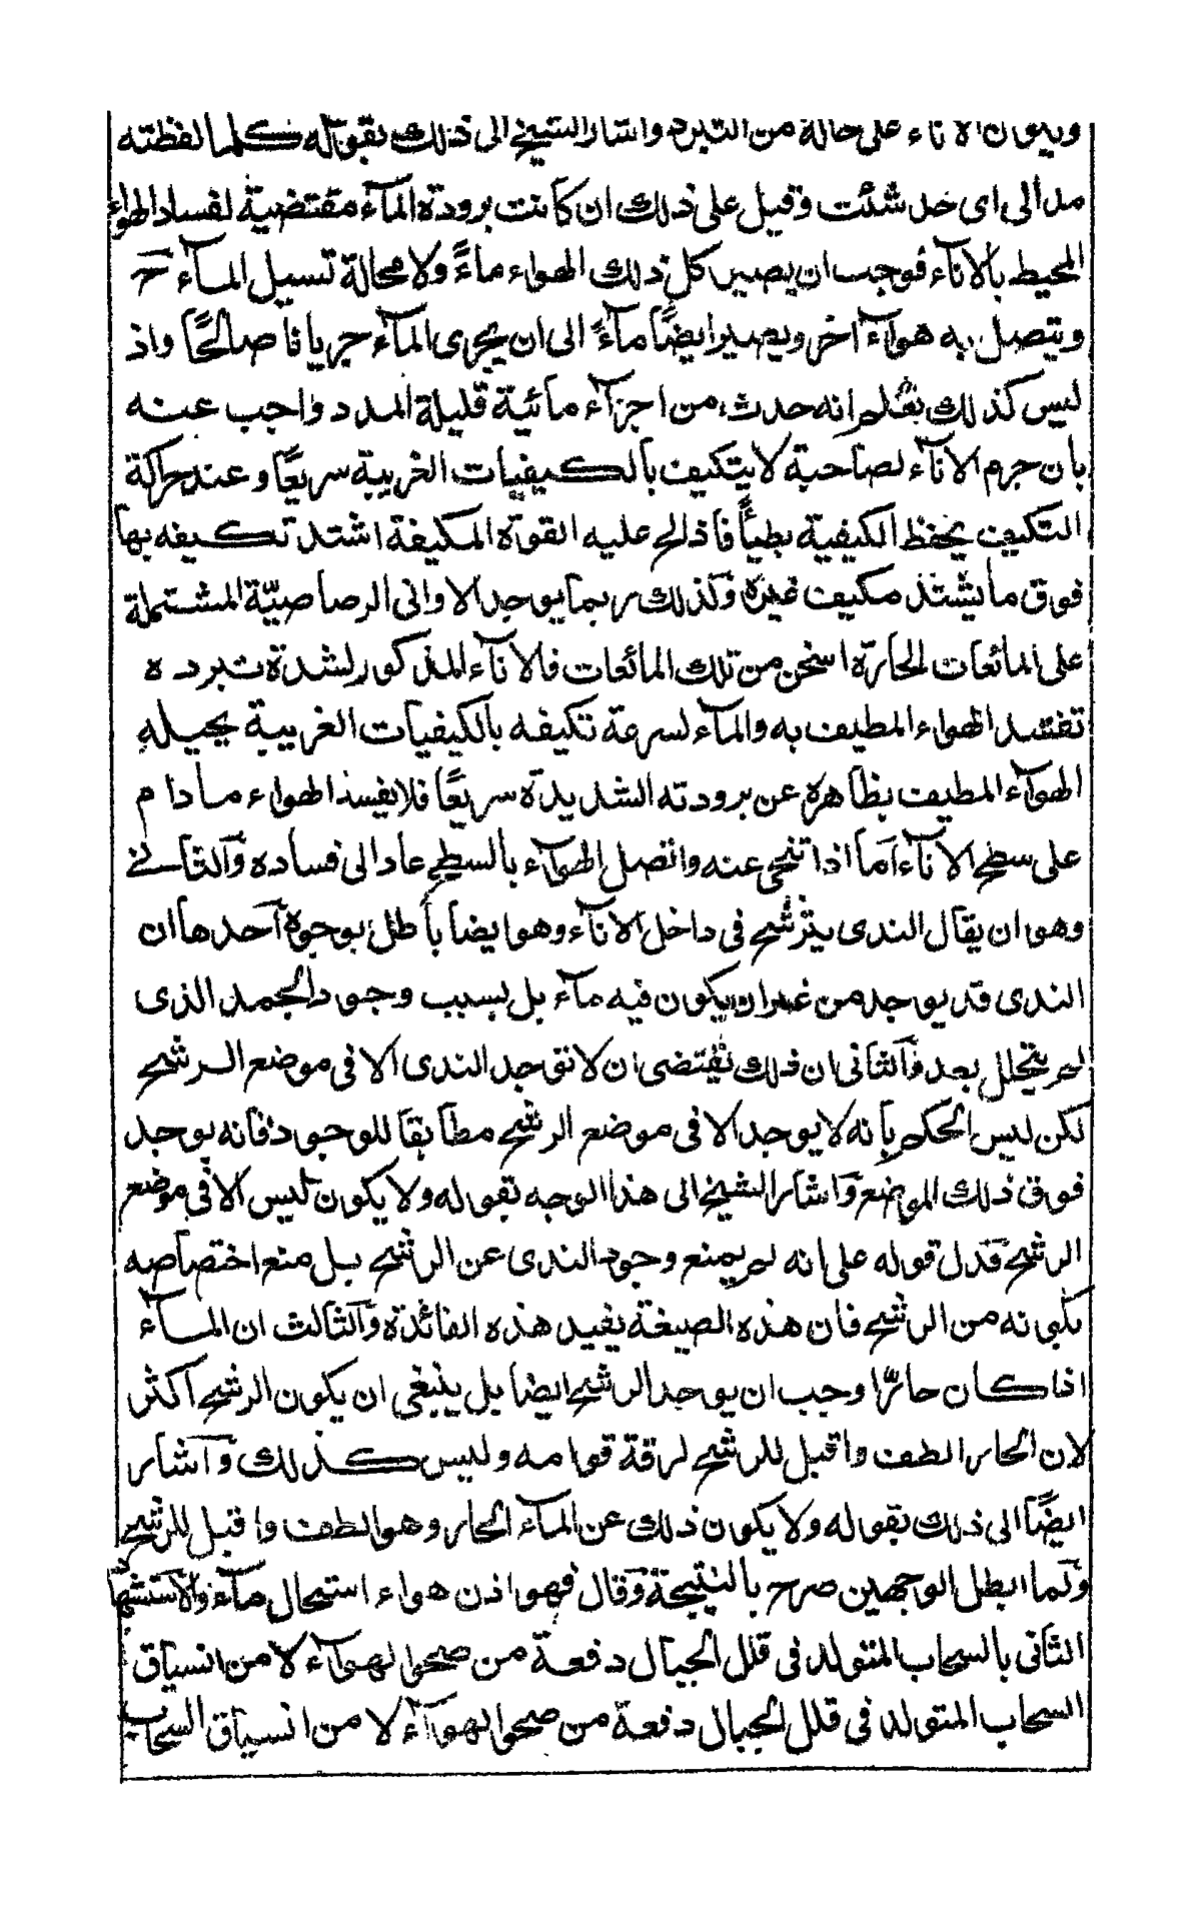 ويكون الاناء على حالة من التبرد واشار الشيخ الى ذلك بقوله كلما لفظته
مد الى اى حد شئت وقيل على ذلك ان كانت برودة المآء مقتضية لفساد الهواء
المحيط بالاناء فوجب ان يصير كل ذلك الهواء ماءً ولا محالة تسيل المآء ح
ويتصل به هواء اخر ويصير ايضًا مآءً الى ان يجرى المآء جريانا صالحًا واذ
ليس كذلك نعلم انه حدث من اجزآء مائية قليلة المدد واجب عنه
بان جرم الانآء لصاحبة لا يتكيف بالكيفيات الغريبة سريعًا وعند حركة
التكيف يحفظ الكيفية بطيأً فاذالح عليه القوة المكيفة اشتد تكيفه بها
فوق ما يشتد مكيف غيره وكذلك ربما يوجد الاوانى الرصاصيّة المشتملة
على المائعات الحارّة اسخن من تلك المائعات فالانآء المذكور لشدة تبرده
تفسد الهواء المطيف به والمآء لسرعة تكيفه بالكيفيات الغريبة يحيله
الهوآء المطيف بظاهره عن برودته الشديدة سريعًا فلا يفسد الهواء مادام
على سطح الانآء اما اذا تنحى عنه واتصل الهوآء بالسطح عاد الى فساده والثانى
وهو ان يقال الندى يترشح فى داخل الانآء وهو ايضا باطل بوجوه آحدها ان
الندى قد يوجد من غير ان يكون فيه مآء بل بسبب وجود الجمد الذى
لم يتحلل بعد والثانى ان ذلك يقتضى ان لا نوجد الندى الا فى موضع الرشح
لكن ليس الحكم بانه لا يوجد الا فى موضع الرشح مطابقا للوجود فانه يوجد
فوق ذلك الموضع واشار الشيخ الى هذا الوجه بقوله ولا يكون ليس الا فى موضع
الرشح فدل قوله على انه لم يمنع وجود الندى عن الرشح بل منع اختصاصه
بكونه من الرشح فان هذه الصيغة يفيد هذه الفائدة والثالث ان المآء
اذا كان حارًّا وجب ان يوجد الرشح ايضا بل ينبغى ان يكون الرشح اكثر
لان الحار الطف واقبل للرشح لرقة قوامه وليس كذلك وآشار
ايضًا الى ذلك بقوله ولا يكون ذلك عن المآء الحار وهو الطف واقبل للرشح
ولما ابطل الوجهين صرح بالنتيجة وقال فهو اذن هواء استحال مآء والاستشها
الثانى بالسحاب المتولد فى قلل الجبال دفعة من صحو الهوآء لا من انسياق
السحاب المتولد فى قلل الجبال دفعة من صحو الهوآء لا من انسياق السحاب